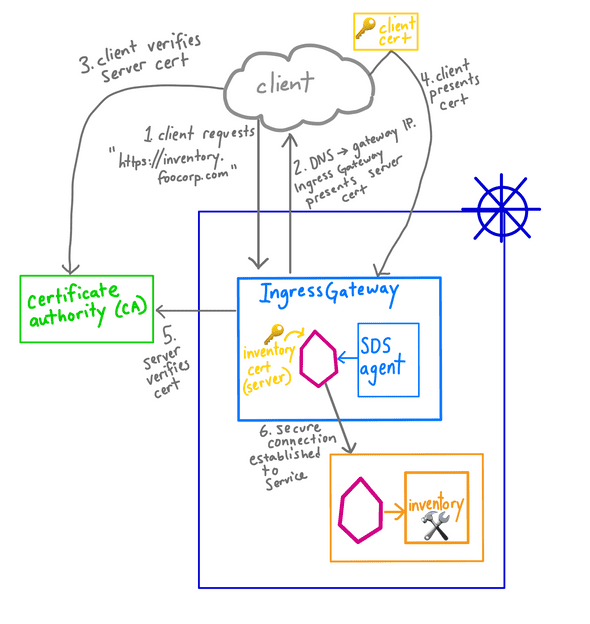 client
cert
3. client verifies
server cert
client
4. client
presents
cert
1 client requests
"https://inventory.
foocorp.com"
2. DNS → gateway IP.
Ingress Gateway
presents server
cert
certificate
authority (CA)
IngressGateway
inventory
cert
(server)
SDS
agent
5.
server
verifies
cert
6. secure
connection
established
to
Service
inventory